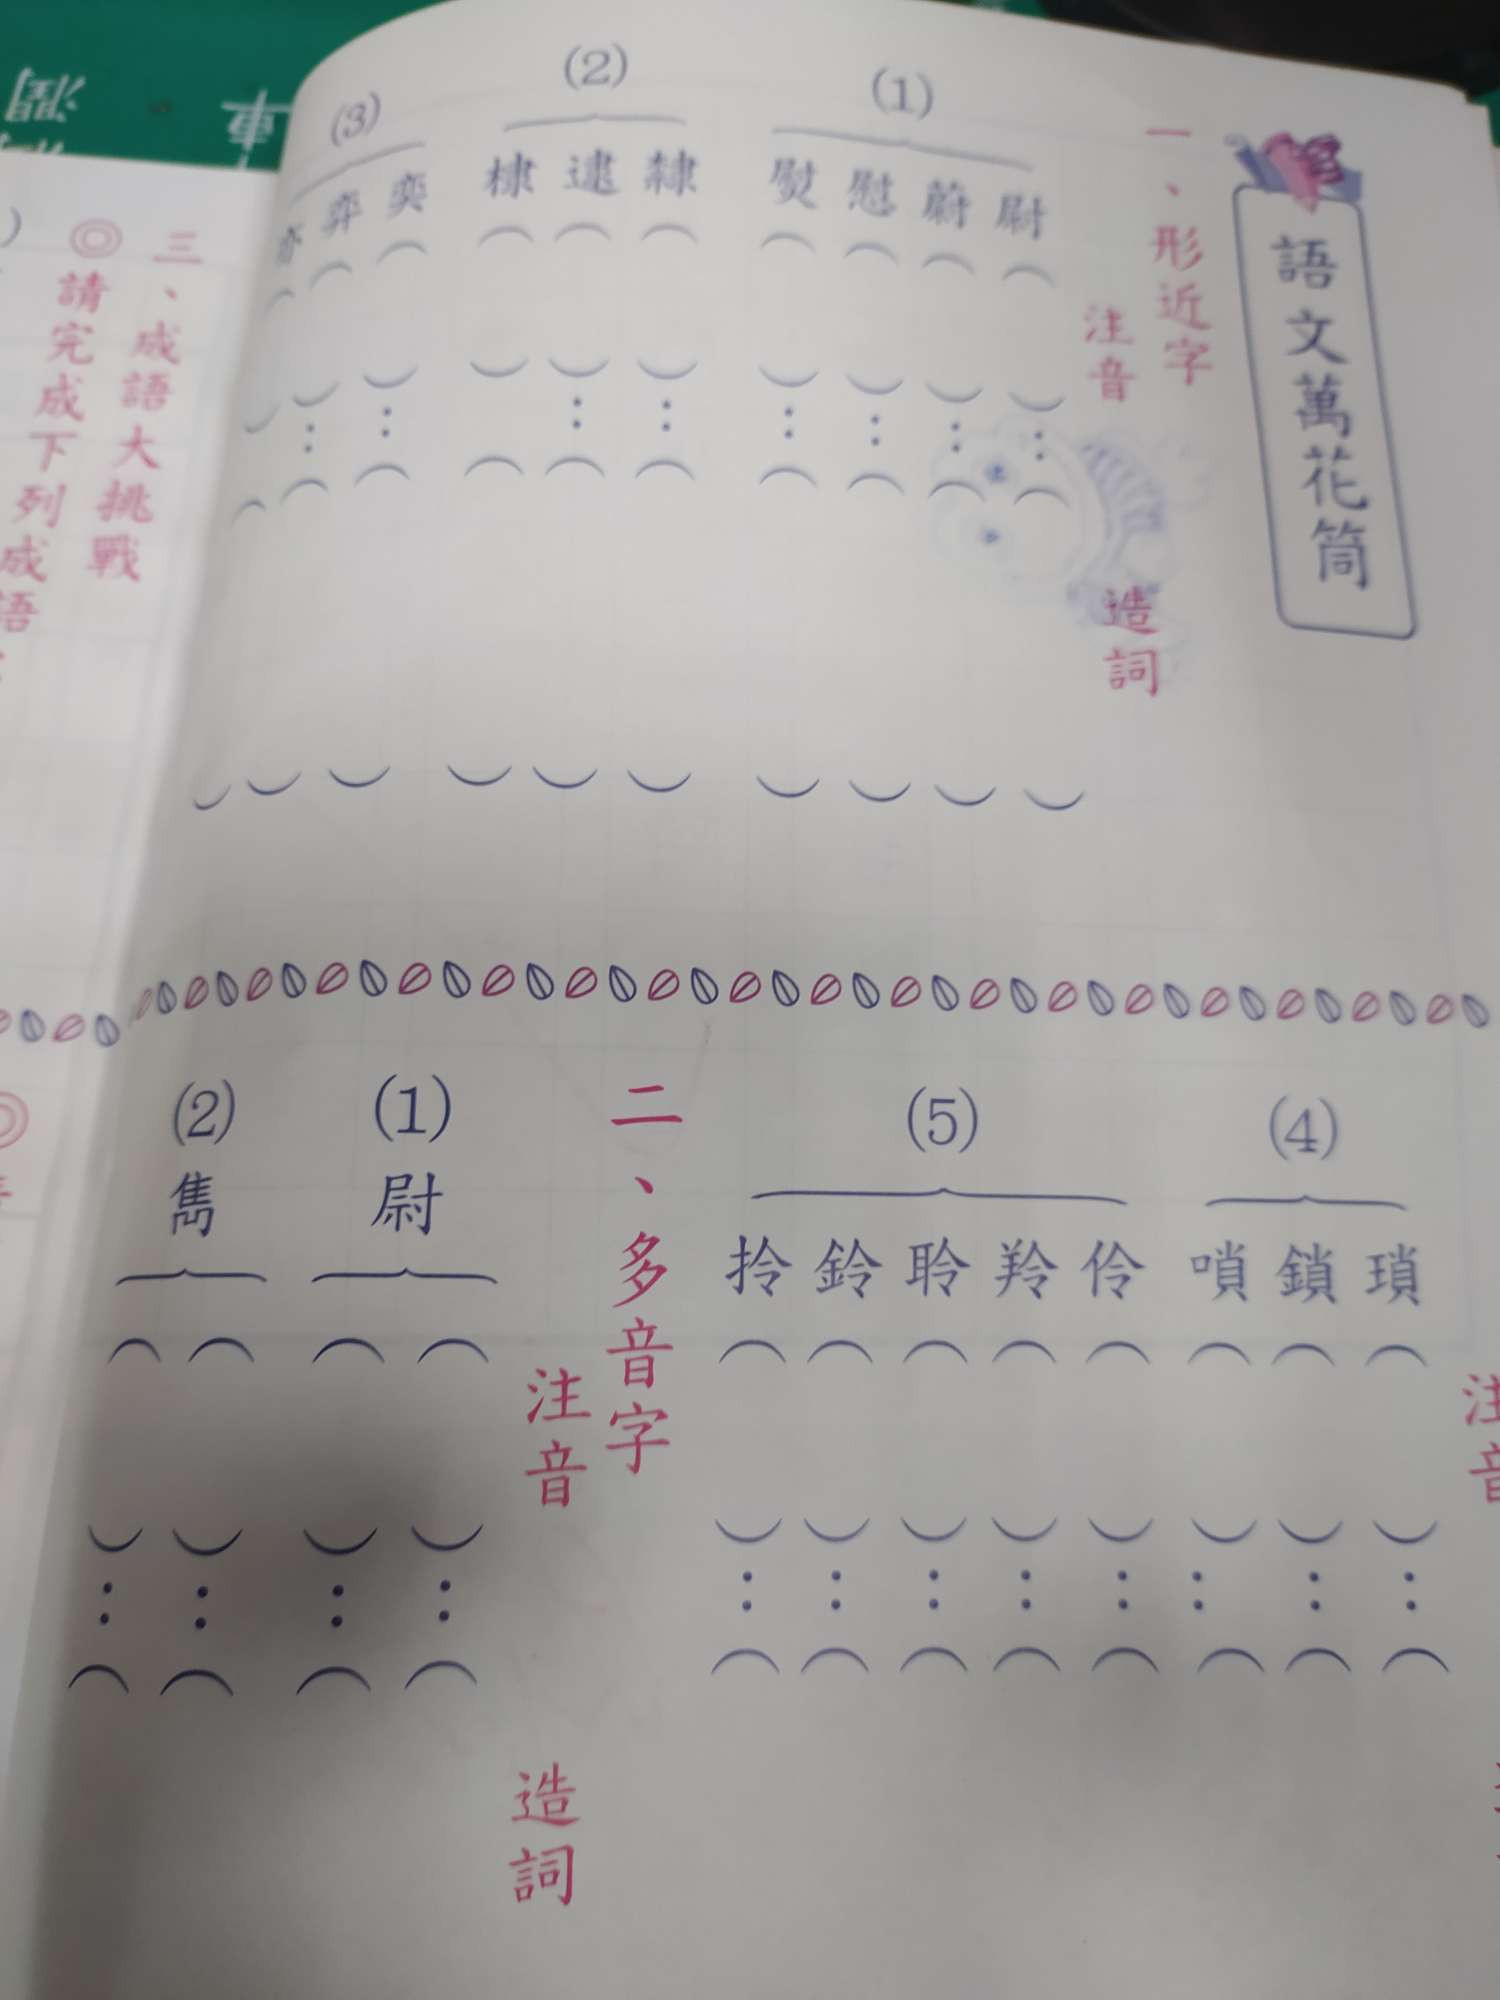 語文萬花筒
一、形近字
注音
造詞
(1)
尉
蔚
慰
熨
(2)
隸
逮
棣
(3)
奕
弈
亦
(4)
瑣
鎖
嗩
(5)
伶
羚
聆
鈴
拎
注音
二、多音字
注音
造詞
(1)
尉
(2)
雋
三、成語大挑戰
◎請完成下列成語